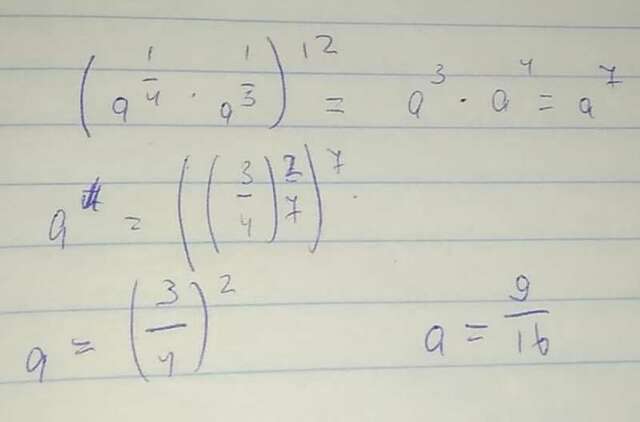 (a^{1/4} · a^{1/3})^{12} = a^3 · a^4 = a^7
a = ((3/4)^{2/7})^7 .
a = (3/4)^2 a = 9/16